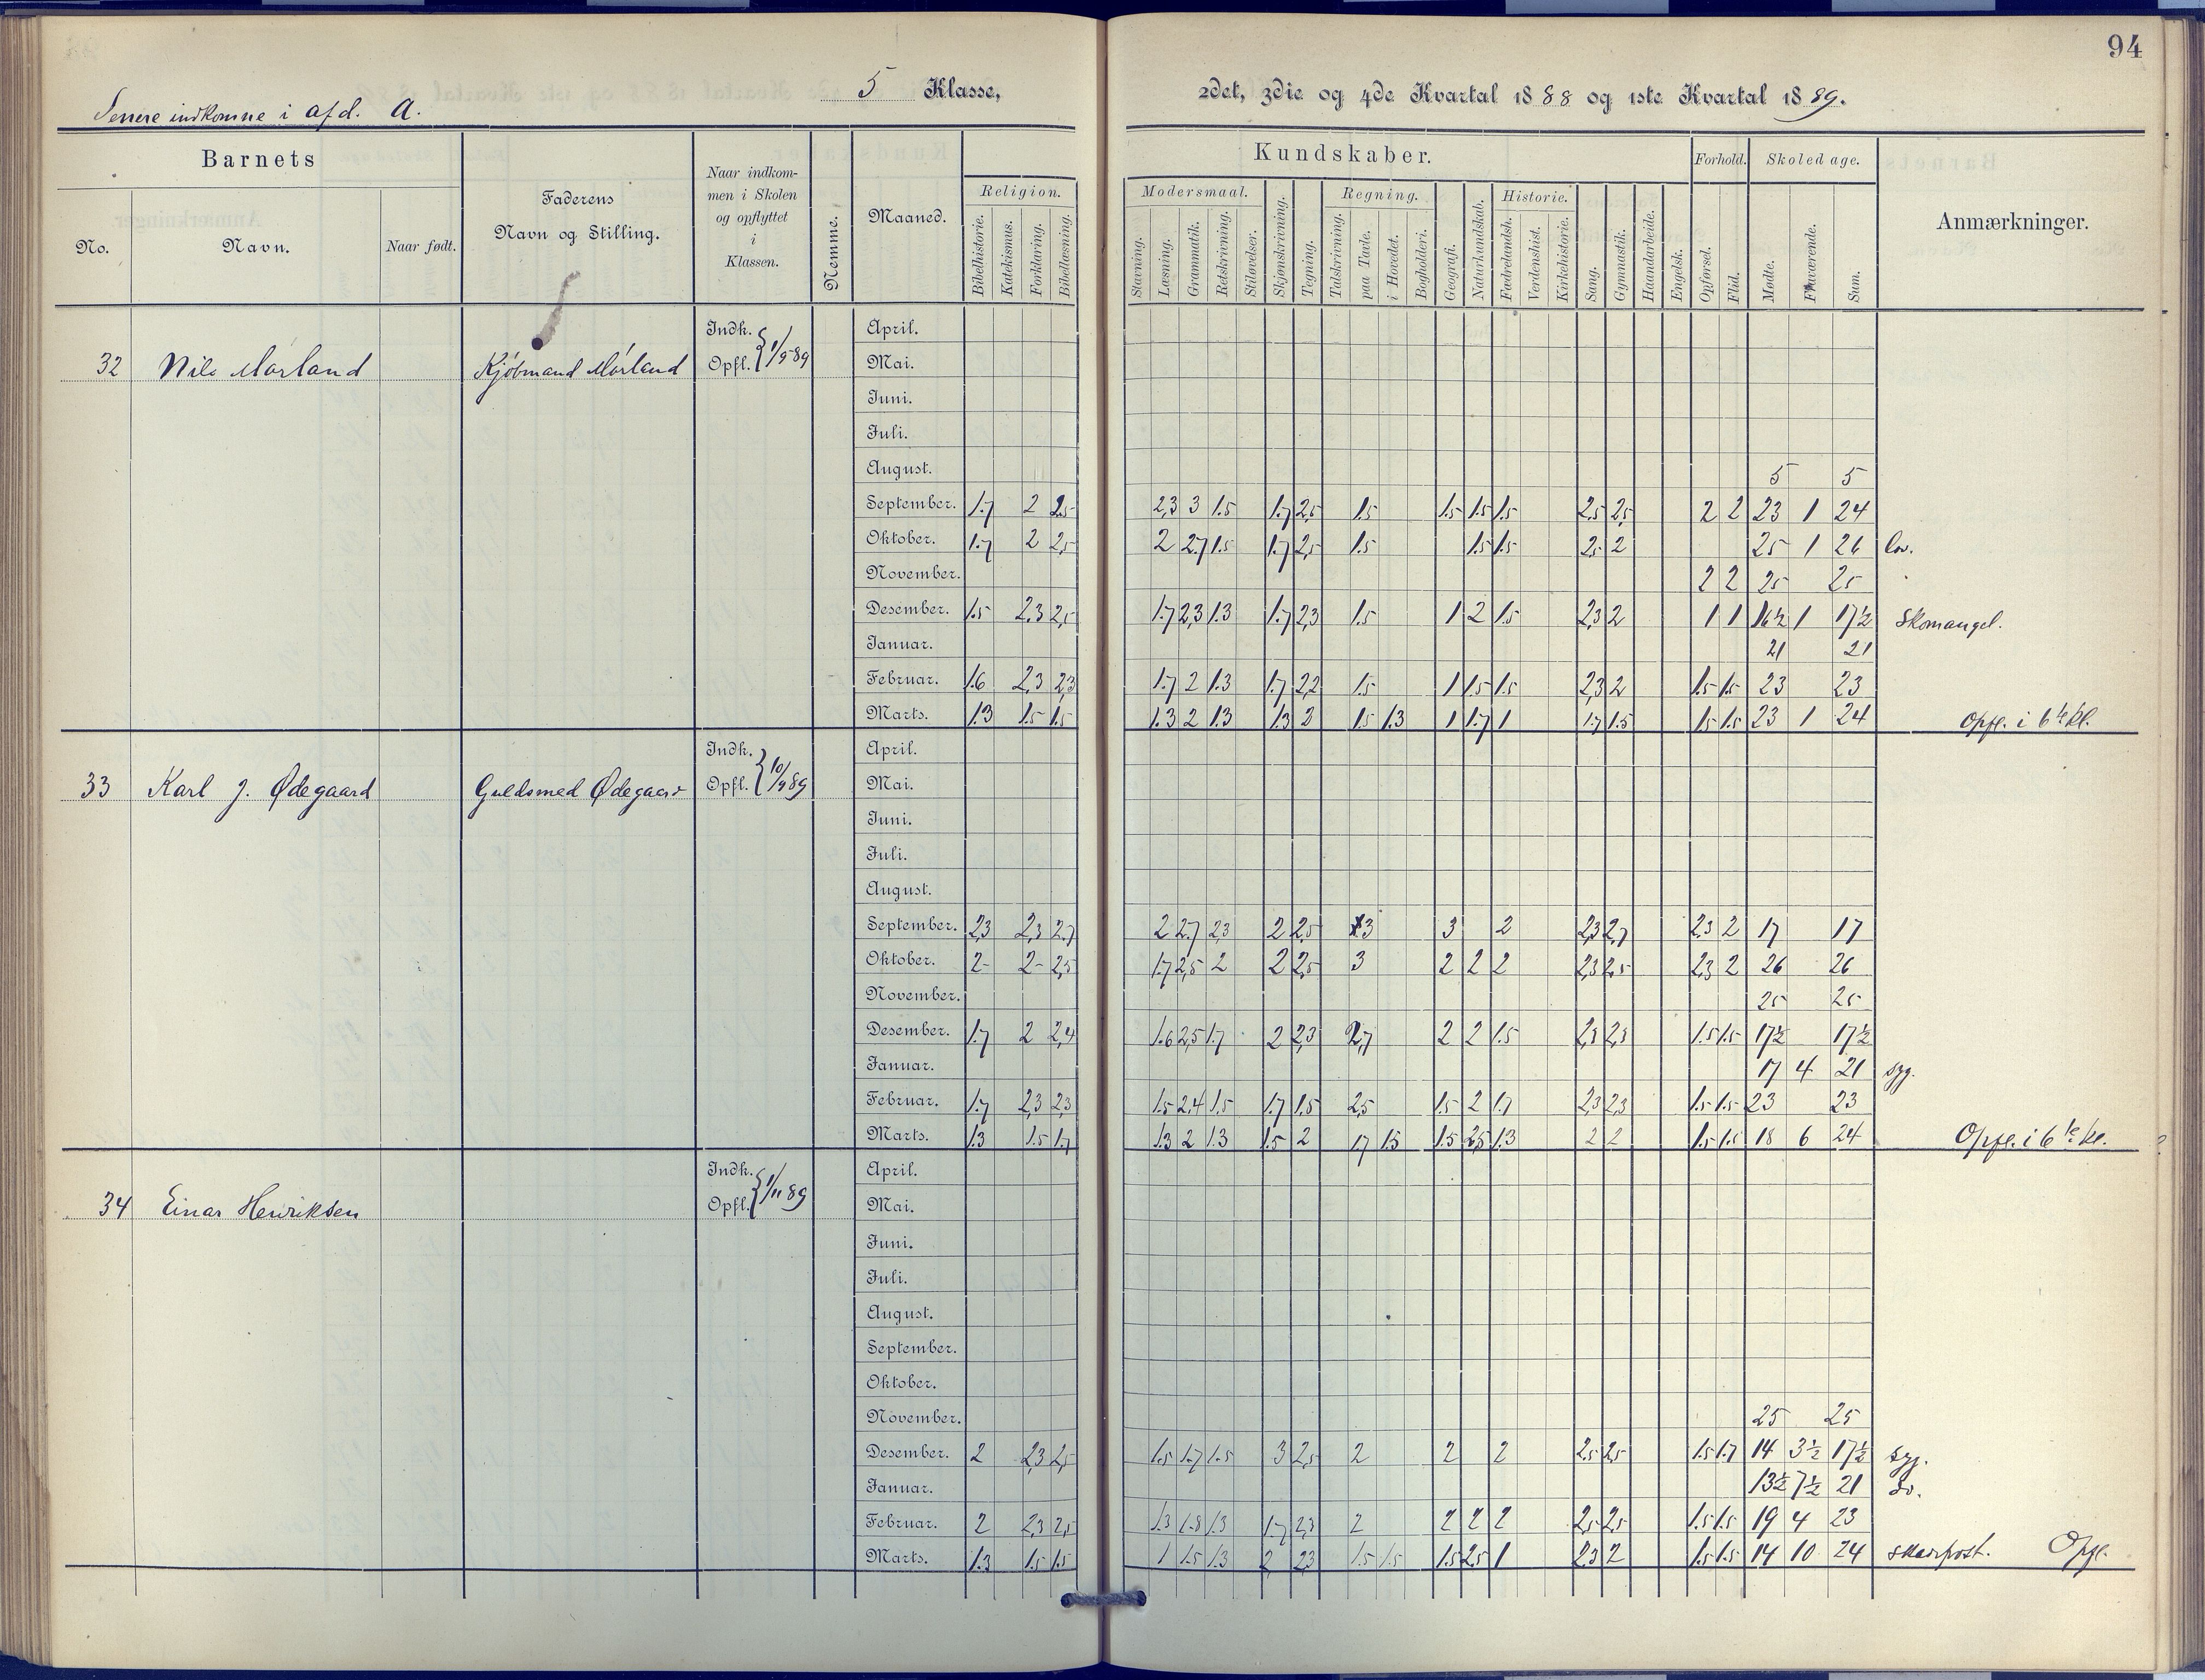 94
5 Klasse, 2det, 3die og 4de Kvartal 1888 og 1ste Kvartal 1889.
Senere indkomne i afd. A.
Barnets
No. Navn. Naar født.
Faderens Navn og Stilling.
Naar indkommen i Skolen og opflyttet i Klassen.
Nemme.
Maaned.
Kundskaber.
Religion. Bibelhistorie. Katekismus. Forklaring. Bibellæsning.
Modersmaal. Stavning. Læsning. Grammatik. Retskrivning. Stiløvelser.
Skjønskrivning. Tegning.
Regning. Talskrivning. paa Tavle. i Hovedet. Bogholderi.
Geografi. Naturkundskab.
Historie. Fædrelandsh. Verdenshist. Kirkehistorie.
Sang. Gymnastik. Haandarbeide. Engelsk.
Forhold. Opførsel. Flid.
Skoledage. Mødte. Fraværende. Sum.
Anmærkninger.
32 Nils Mørland Kjøbmand Mørland Indk. Opfl. } 1/9 89
April.
Mai.
Juni.
Juli.
August. 5 5
September. 1.7 2 2.5 2,3 3 1.5 1.7 2,5 1.5 1.5 1.5 1.5 2,5 2,5 2 2 23 1 24
Oktober. 1.7 2 2,5 2 2.7 1.5 1.7 2,5 1.5 1.5 1.5 2,5 2 25 1 26 lov.
November. 2 2 25 25
Desember. 1.5 2.3 2,5 1.7 2,3 1.3 1.7 2,3 1.5 1 2 1.5 2,3 2 1 1 16½ 1 17½ Skomangel.
Januar. 21 21
Februar. 1.6 2,3 2,3 1.7 2 1.3 1.7 2,2 1.5 1 1.5 1.5 2,3 2 1.5 1.5 23 23
Marts. 1.3 1.5 1.5 1.3 2 1.3 1.3 2 1.5 1.3 1 1.7 1 1.7 1.5 1.5 1.5 23 1 24 Opfl. i 6te kl.
33 Karl J. Ødegaard Guldsmed Ødegaard Indk. Opfl. } 10/9 89
April.
Mai.
Juni.
Juli.
August.
September. 2,3 2,3 2.7 2 2.7 2,3 2 2,5 3 3 2 2,3 2,7 2.3 2 17 17
Oktober. 2- 2- 2,5 1.7 2,5 2 2 2,5 3 2 2 2 2,3 2,5 2,3 2 26 26
November. 25 25
Desember. 1.7 2 2,4 1.6 2,5 1.7 2 2,3 2,7 2 2 1.5 2,3 2,3 1.5 1.5 17½ 17½
Januar. 17 4 21 syg.
Februar. 1.7 2,3 2,3 1.5 2,4 1,5 1.7 1.5 2,5 1.5 2 1.7 2,3 2,3 1.5 1.5 23 23
Marts. 1.3 1.5 1.7 1.3 2 1.3 1.5 2 1.7 1.5 1.5 2,5 1.3 2 2 1.5 1.5 18 6 24 Opfl. i 6te kl.
34 Einar Henriksen Indk. Opfl. } 1/11 89
April.
Mai.
Juni.
Juli.
August.
September.
Oktober.
November. 25 25
Desember. 2 2,3 2,5 1.5 1.7 1.5 3 2,5 2 2 2 2,5 2,5 1.5 1.7 14 3½ 17½ syg.
Januar. 13½ 7½ 21 do.
Februar. 2 2,3 2,5 1.3 1.8 1.3 1.7 2,3 2 2 2 2 2,5 2,5 1.5 1.5 19 4 23
Marts. 1.3 1.5 1.5 1 1.5 1.3 2 2,3 1.5 1.5 1.5 2,5 1 2,3 2 1.5 1.5 14 10 24 Opfl.